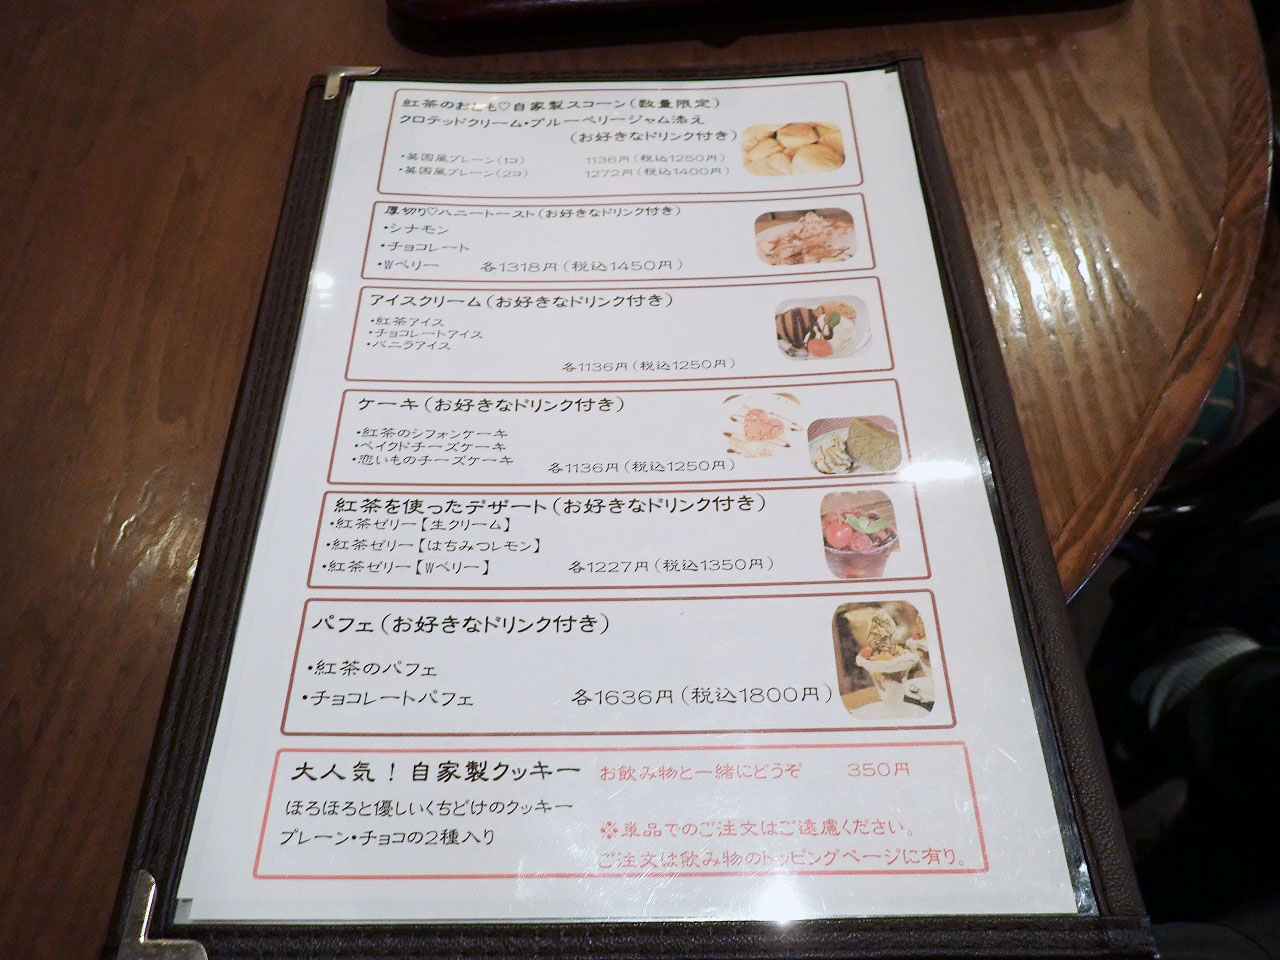 紅茶のおとも♡自家製スコーン(数量限定)
クロテッドクリーム・ブルーベリージャム添え
(お好きなドリンク付き)
・英国風プレーン(1コ) 1136円(税込1250円)
・英国風プレーン(2コ) 1272円(税込1400円)
厚切り♡ハニートースト(お好きなドリンク付き)
・シナモン
・チョコレート
・Wベリー 各1318円(税込1450円)
アイスクリーム(お好きなドリンク付き)
・紅茶アイス
・チョコレートアイス
・バニラアイス
各1136円(税込1250円)
ケーキ(お好きなドリンク付き)
・紅茶のシフォンケーキ
・ベイクドチーズケーキ
・恋いものチーズケーキ 各1136円(税込1250円)
紅茶を使ったデザート(お好きなドリンク付き)
・紅茶ゼリー【生クリーム】
・紅茶ゼリー【はちみつレモン】
・紅茶ゼリー【Wベリー】 各1227円(税込1350円)
パフェ(お好きなドリンク付き)
・紅茶のパフェ
・チョコレートパフェ 各1636円(税込1800円)
大人気!自家製クッキー お飲み物と一緒にどうぞ 350円
ほろほろと優しいくちどけのクッキー
プレーン・チョコの2種入り
※単品でのご注文はご遠慮ください。
ご注文は飲み物のトッピングページに有り。